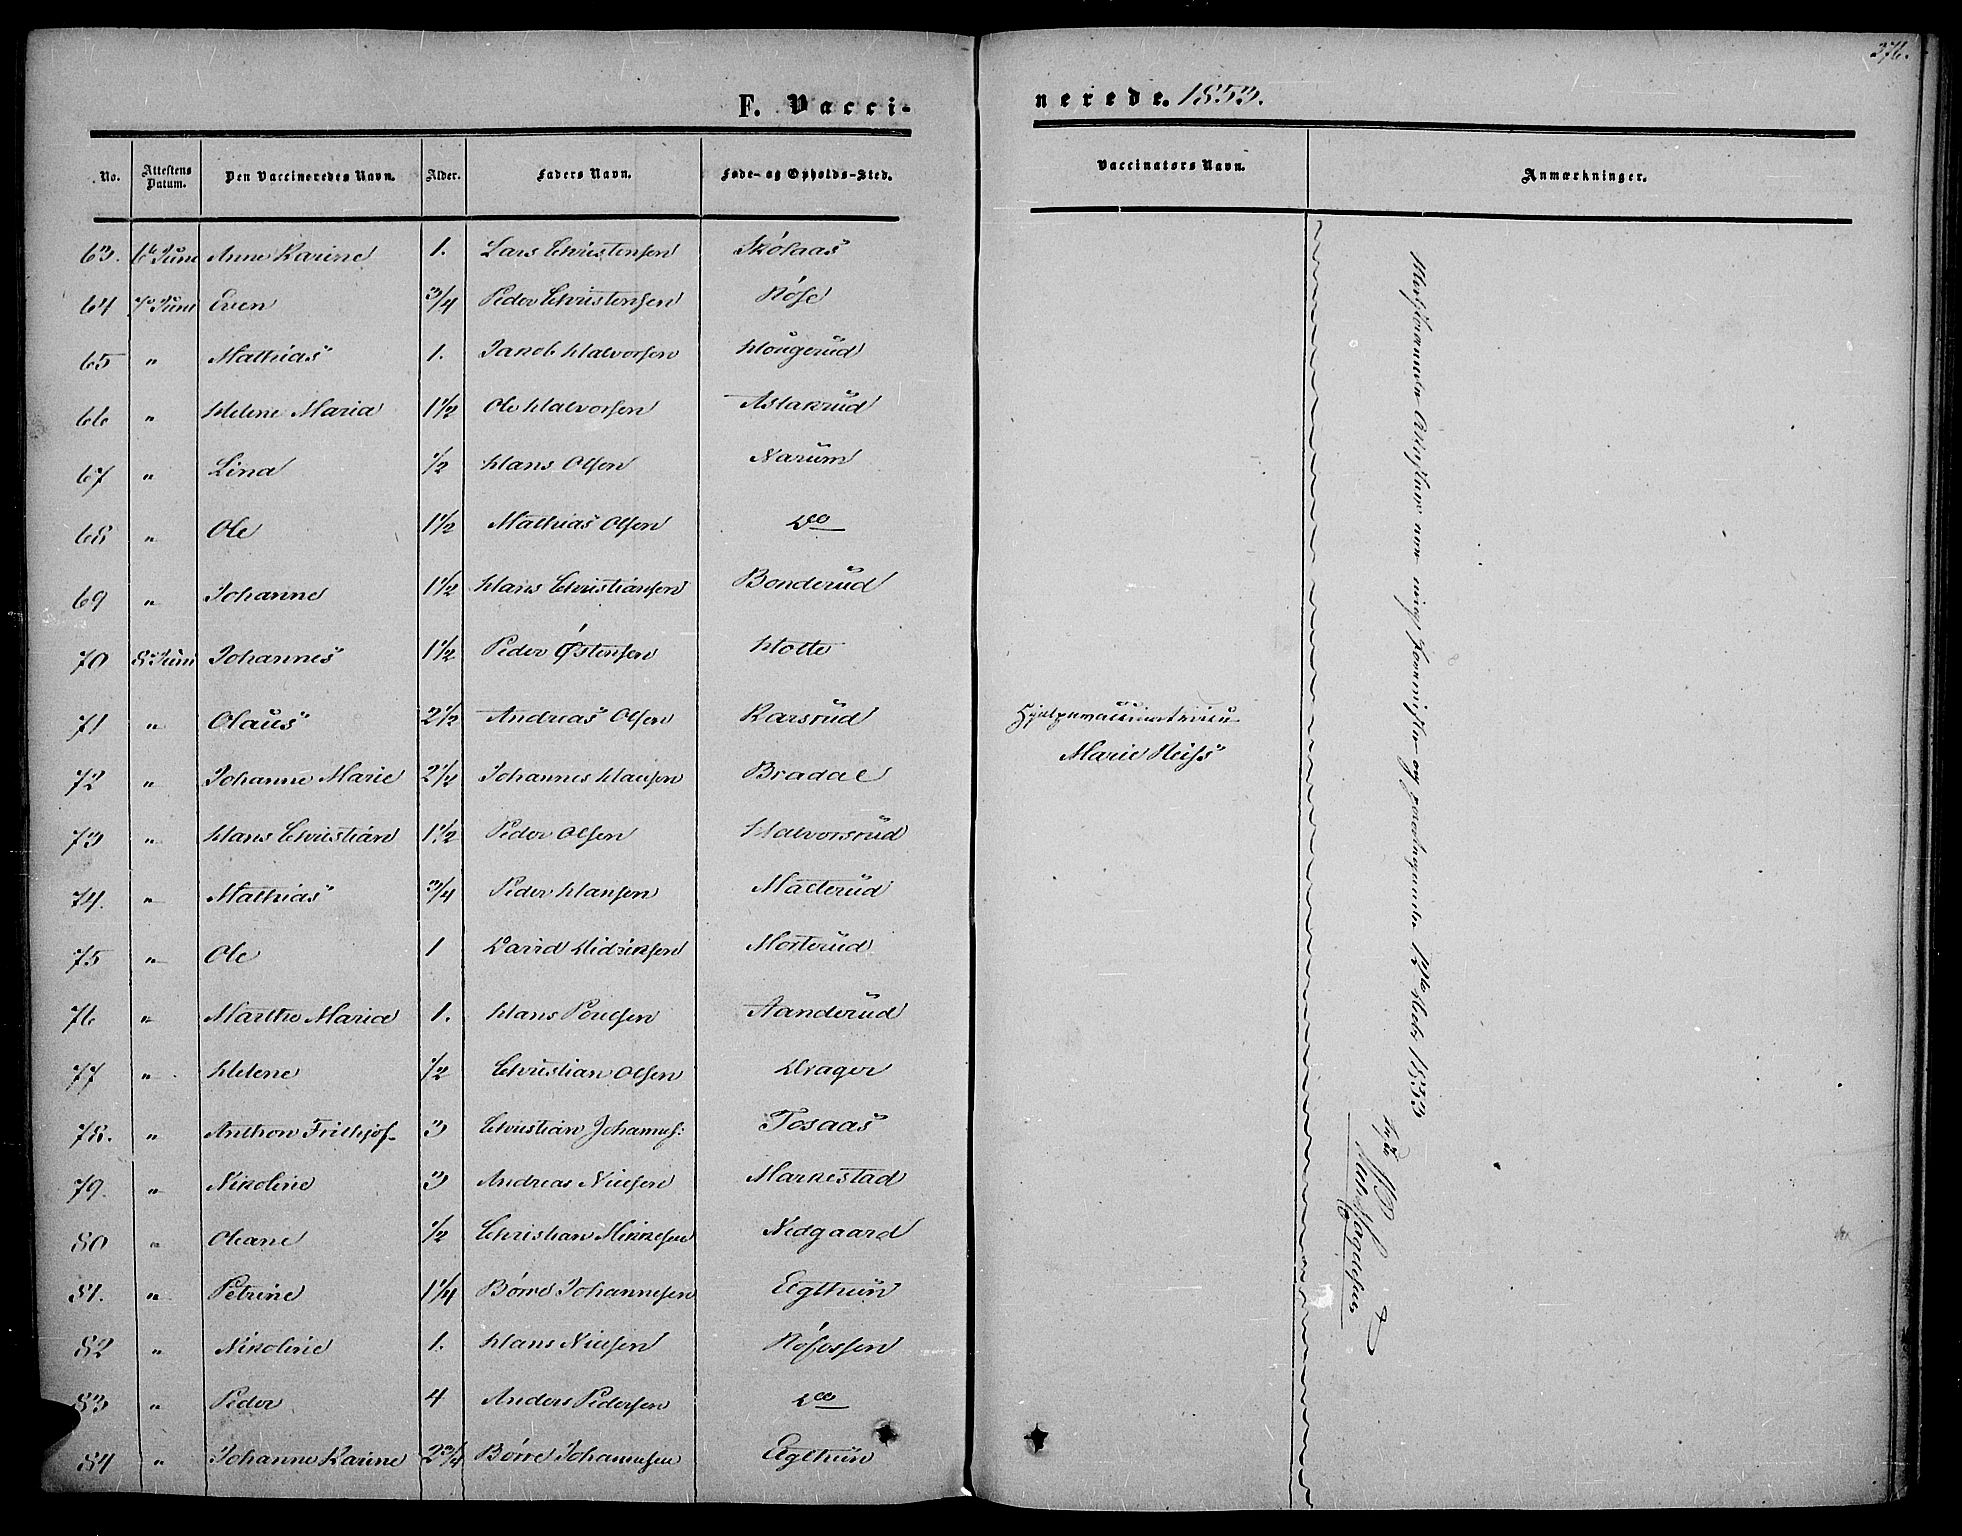 376.
F. Vaccinerede. 1853.
No. Attestens Datum. Den Vaccineredes Navn. Alder. Faders Navn. Føde- og Opholds-Sted. Vaccinators Navn. Anmærkninger.
63. 6te Juni Anne Karine 1. Lars Christensen Skölaas
64 7de Juni Even 3/4 Peder Christensen
65 " Mathias 1. Jacob Halvorsen Hougerud
66 " Helene Maria 1 1/2 Ole Halvorsen Aslakrud
67 " Lina 1/2 Hans Olsen Narum
68 " Ole 1 1/2 Mathias Olsen Do
69 " Johanne 1 1/2 Hans Christiansen Bonderud
70 8de Juni Johannes 1 1/2 Peder Østensen Hotte
71 " Olaus 2 1/2 Andreas Olsen Karsrud
Hjælpevaccinatricen
72 " Johanne Marie 2 1/4 Johannes Hansen Bradal Marie Heiss
73 " Hans Christian 1 1/2 Peder Olsen Halvorsrud
74. " Mathias 3/4 Peder Hansen Malterud
75 " Ole 1 David Didriksen Morterud
76 " Marthe Maria 1. Hans Poulsen Aanderud
77 " Helene 1/2 Christian Olsen Drager
78. " Anthon Frithjof 3 Christian Johannes: Tosaas
79. " Nikoline 3 Andreas Nielsen Markestad
80 " Oleane 1/2 Christian Mikkelsen Nedgaard
81. " Petrine 1 1/4 Börre Johannesen Eglhun
82 " Nikoline 1. Hans Nielsen
83 " Peder 4 Anders Pedersen Do
84 " Johanne Karine 2 3/4 Börre Johannesen Eglhun
Afskrift og 1853